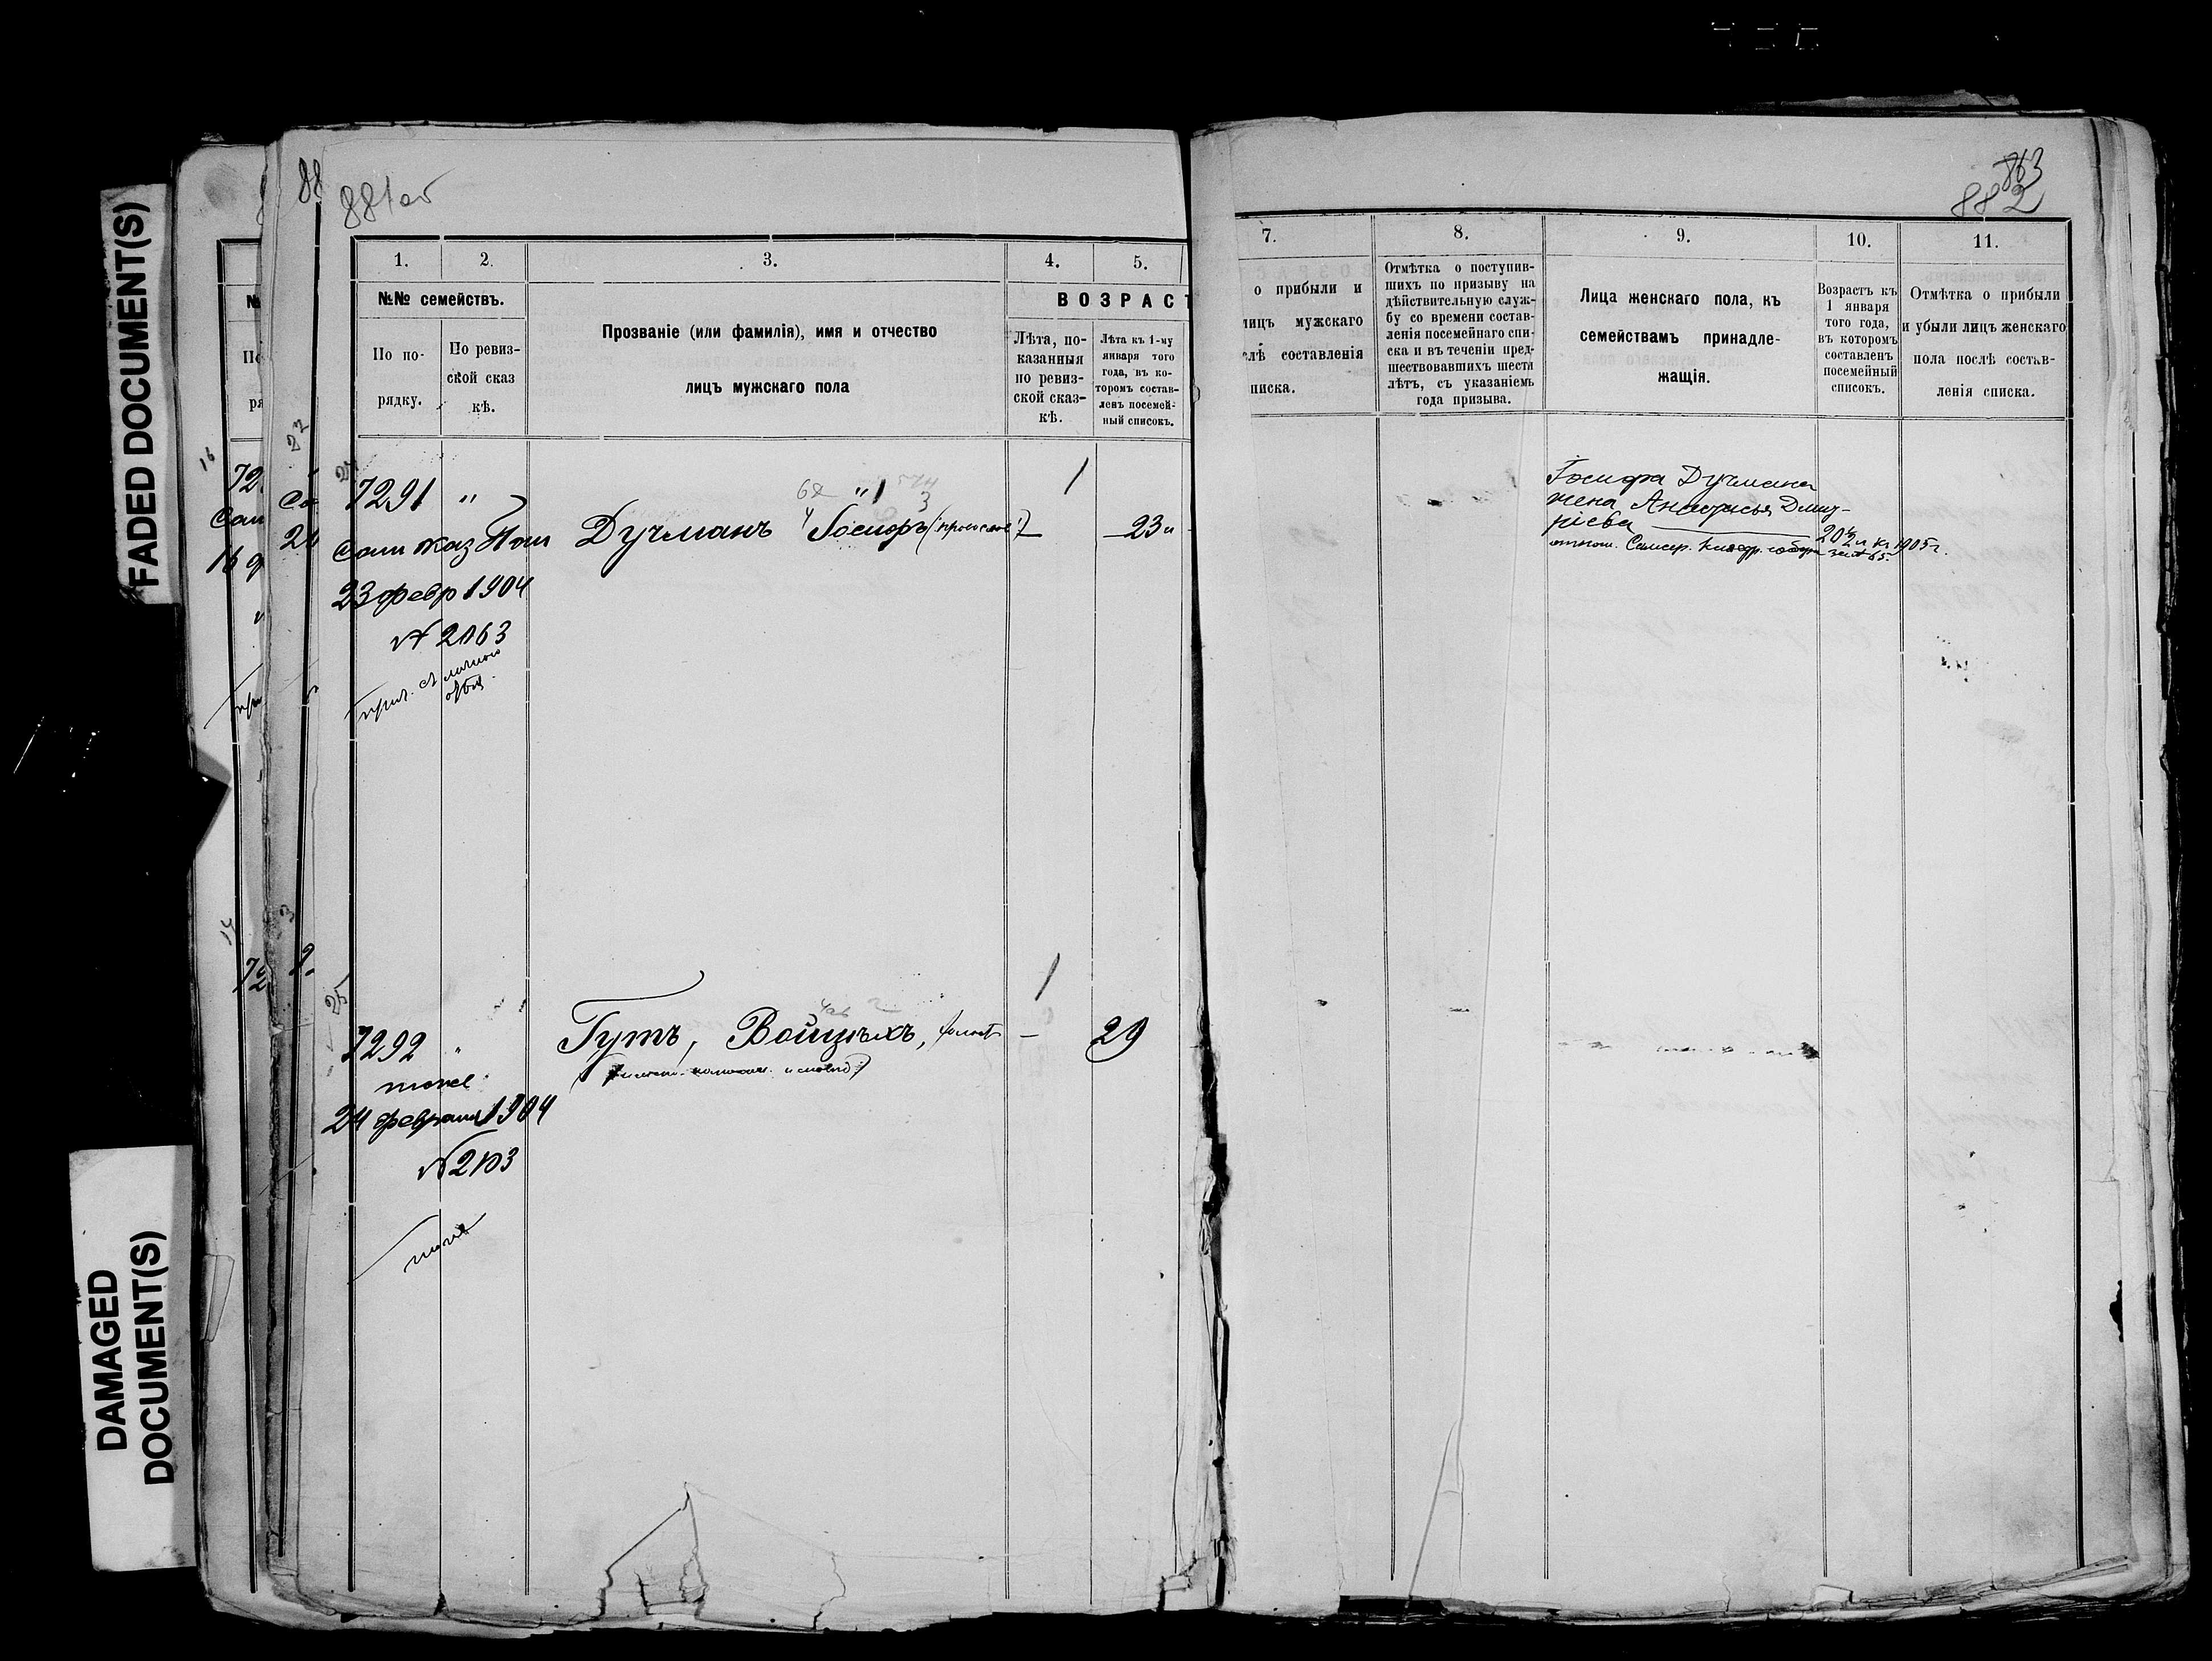 FADED DOCUMENT(S)
DAMAGED
DOCUMENT(S)
88
881об
1.
2.
3.
4.
5.
№№ семействъ.
По по-
рядку.
По ревиз-
ской сказ
кѣ.
Прозваніе (или фамилія), имя и отчество
лицъ мужскаго пола
ВОЗРАСТ
Лѣта, по-
казанныя
по ревиз-
ской сказ-
кѣ.
Лѣта къ 1-му
января того
года, въ ко-
торомъ состав-
ленъ посемей-
ный списокъ.
7291 "
Дучманъ Іосифъ
1
23
23 февр 1904
№ 2063
25
7292 "
Гутъ, Войцѣхъ, холост
1
— 29
тоже
24 февраля 1904
№ 2103
тоже
863
882
7.
8.
9.
10.
11.
о прибыли и
лицъ мужскаго
слѣ составленія
писка.
Отмѣтка о поступив-
шихъ по призыву на
дѣйствительную служ-
бу со времени состав-
ленія посемейнаго спи-
ска и въ теченіи пред-
шествовавшихъ шести
лѣтъ, съ указаніемъ
года призыва.
Лица женскаго пола, къ
семействамъ принадле-
жащія.
Возрастъ къ
1 января
того года,
въ которомъ
составленъ
посемейный
списокъ.
Отмѣтка о прибыли
и убыли лицъ женскаго
пола послѣ состав-
ленія списка.
Іосифа Дучмана
жена Анастасья Дмит-
ріева
1905 г.